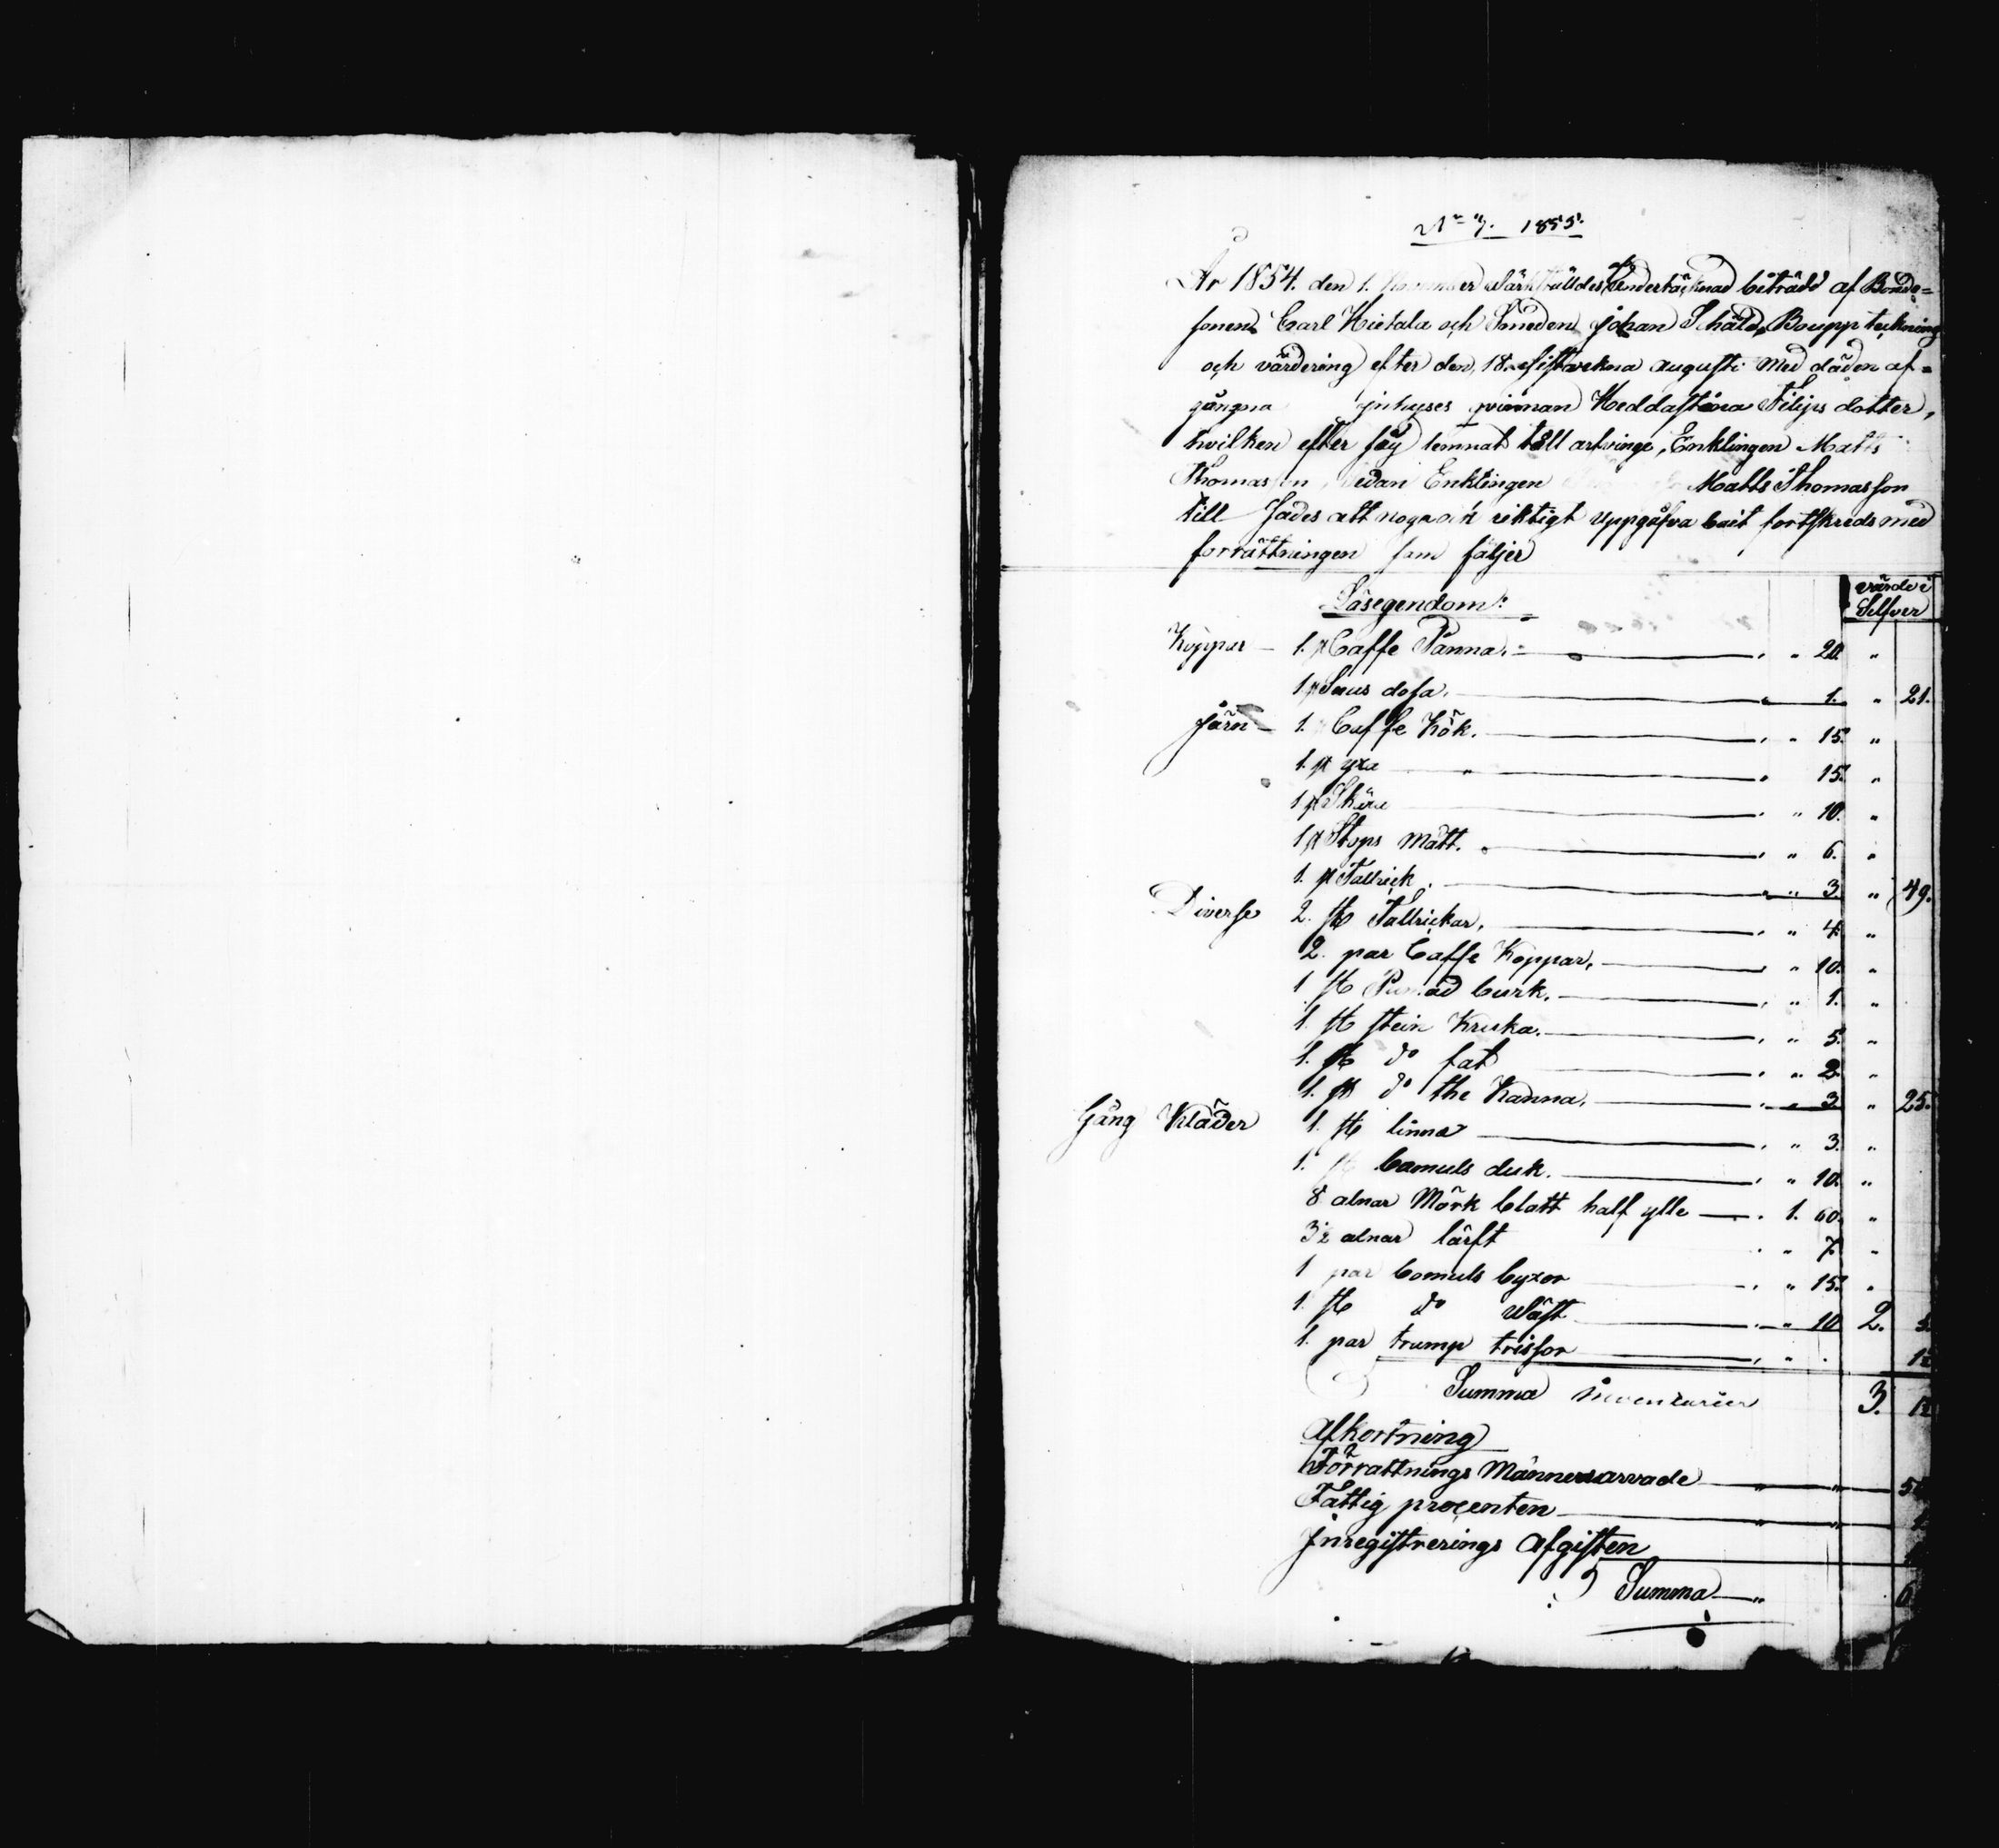 N:o 7. 1855.
År 1854. den 1. November värkställdes af Undertäcknad biträdd af Bonde=
sonen Carl Hietala och Smeden johan Schäld, Boupp teckning
och värdering efter den 18. sistvekna augusti med döden af=
gångna inhyses qvinnan Heddastina Filips dotter,
hvilken efter sig lemnat till arfvinge, Enklingen Matts
Thomasson, sedan Enklingen Matts Thomasson
till sades att noga och riktigt uppgifva boit fortskreds med
forrättningen som följer
värde i
Silfver
Lösegendom:
Koppar — 1. st Caffe Panna. " 20. "
1 st Snus dosa. 1. " 21.
Järn — 1. Caffe Kök. " 15. "
1. st yxa " 15. "
1 st Skära " 10. "
1 st Stops Mått. " 6. "
1. st Tallrick. " 3. " 49.
Diverse 2. st Tallrickar. " 4. "
2. par Caffe Koppar. " 10. "
1 st Pumad burk. " 1. "
1. st stein Kruka. " 5. "
1. st do fat " 2. "
1. st do the Kanna. " 3. " 25.
Gång Kläder 1. st linne " 3. "
1. st bomuls duk. " 10. "
8 alnar Mörk blått half ylle 1. 60. "
3½ alnar lärft " 7. "
1 par bomuls byxor " 15. "
1. st do Wäst " 10 2. 5.
1. par trump trissor "
Summa inventarier 3.
Afkortning
Förrattnings Männers arvade " "
Fattig procenten " "
Inregistrerings afgiften
Summa "